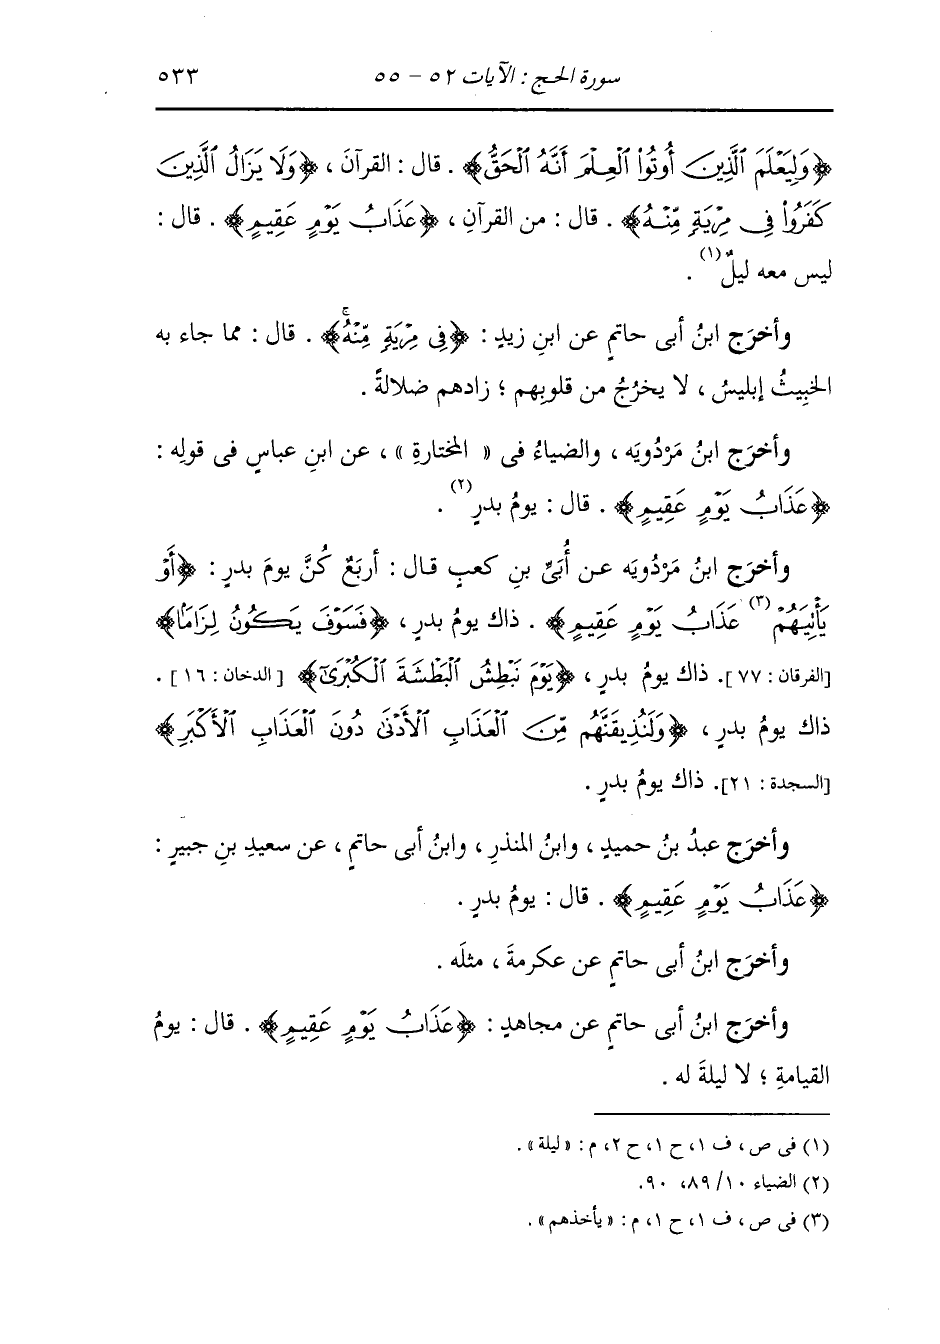 سورة الحج : الآيات ٥٢ - ٥٥ ٥٣٣
﴿وَلِيَعْلَمَ الَّذِينَ أُوتُوا۟ الْعِلْمَ أَنَّهُ الْحَقُّ﴾ . قال : القرآنَ ، ﴿وَلَا يَزَالُ الَّذِينَ
كَفَرُوا۟ فِى مِرْيَةٍ مِّنْهُ﴾ . قال : من القرآنِ ، ﴿عَذَابُ يَوْمٍ عَقِيمٍ﴾ . قال :
ليس معه ليلٌ(١) .
وأخرَج ابنُ أبى حاتمٍ عن ابنِ زيدٍ : ﴿فِى مِرْيَةٍ مِّنْهُۚ﴾ . قال : مما جاء به
الخبِيثُ إبليسُ ، لا يخرُجُ من قلوبِهم ؛ زادهم ضلالةً .
وأخرَج ابنُ مَرْدُويَه ، والضياءُ فى « المختارةِ » ، عن ابنِ عباسٍ فى قولِه :
﴿عَذَابُ يَوْمٍ عَقِيمٍ﴾ . قال : يومُ بدرٍ(٢) .
وأخرَج ابنُ مَرْدُويَه عن أُبَىِّ بنِ كعبٍ قال : أربَعٌ كُنَّ يومَ بدرٍ : ﴿أَوْ
يَأْتِيَهُمْ(٣) عَذَابُ يَوْمٍ عَقِيمٍ﴾ . ذاك يومُ بدرٍ ، ﴿فَسَوْفَ يَكُونُ لِزَامًا﴾
[الفرقان : ٧٧]. ذاك يومُ بدرٍ ، ﴿يَوْمَ نَبْطِشُ الْبَطْشَةَ الْكُبْرَىٰٓ﴾ [الدخان : ١٦] .
ذاك يومُ بدرٍ ، ﴿وَلَنُذِيقَنَّهُم مِّنَ الْعَذَابِ الْأَدْنَىٰ دُونَ الْعَذَابِ الْأَكْبَرِ﴾
[السجدة : ٢١]. ذاك يومُ بدرٍ .
وأخرَج عبدُ بنُ حميدٍ ، وابنُ المنذرِ ، وابنُ أبى حاتمٍ ، عن سعيدِ بنِ جبيرٍ :
﴿عَذَابُ يَوْمٍ عَقِيمٍ﴾ . قال : يومُ بدرٍ .
وأخرَج ابنُ أبى حاتمٍ عن عكرمةَ ، مثلَه .
وأخرَج ابنُ أبى حاتمٍ عن مجاهدٍ : ﴿عَذَابُ يَوْمٍ عَقِيمٍ﴾ . قال : يومُ
القيامةِ ؛ لا ليلةَ له .
(١) فى ص ، ف ١، ح ١، ح ٢، م : « ليلة » .
(٢) الضياء ١٠/ ٨٩، ٩٠.
(٣) فى ص ، ف ١، ح ١، م : « يأخذهم » .